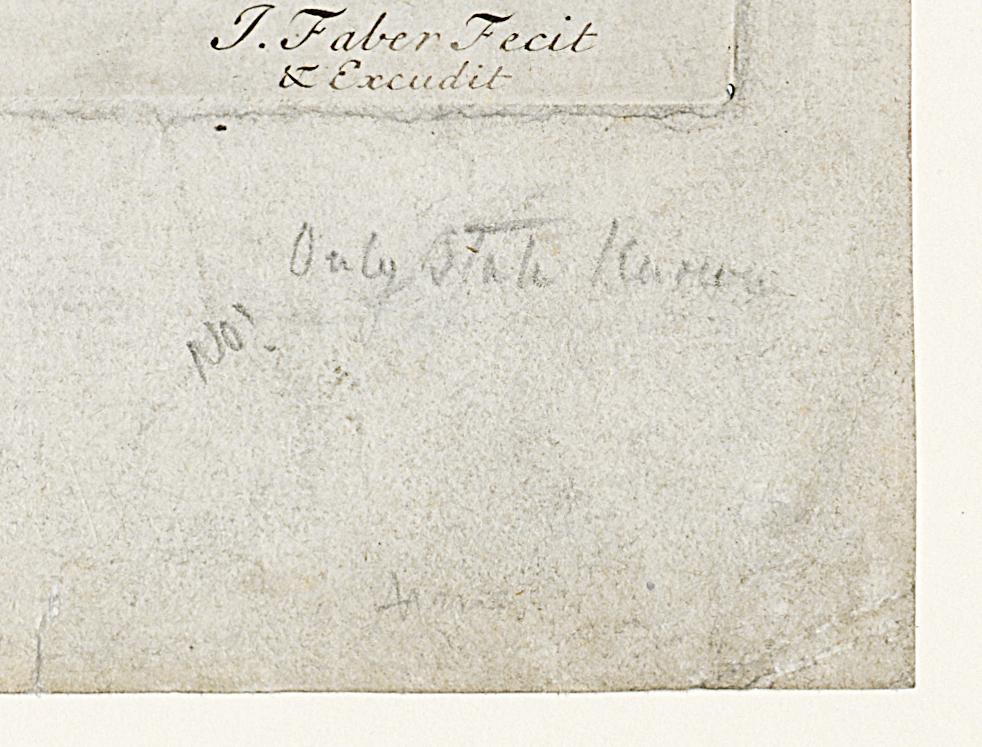 J. Faber Fecit
& Excudit
Only State Known
No!